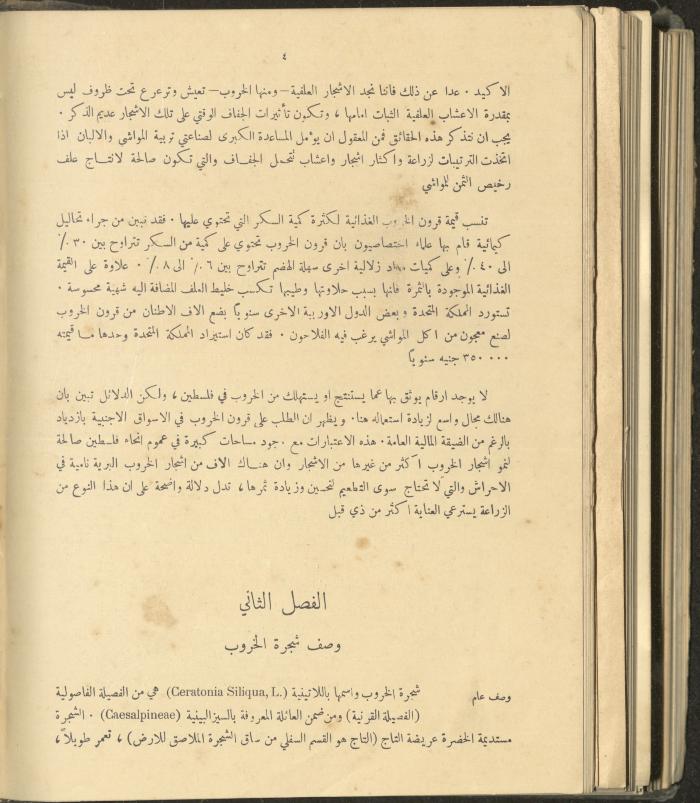 ٤
الاكيد. عدا عن ذلك فاننا نجد الاشجار العلفية – ومنها الخروب – تعيش وترعرع تحت ظروف ليس
بمقدرة الاعشاب العلفية الثبات امامها، وتكون تأثيرات الجفاف الوقتي على تلك الاشجار عديم الذكر.
يجب ان نتذكر هذه الحقائق فمن المعقول ان يؤمل المساعدة الكبرى لصناعتي تربية المواشي والالبان اذا
اتخذت الترتيبات لزراعة واكثار اشجار واعشاب تتحمل الجفاف والتي تكون صالحة لانتاج علف
رخيص الثمن للمواشي
تنسب قيمة قرون الخروب الغذائية لكثرة كمية السكر التي تحتوي عليها. فقد تبين من جراء تحاليل
كيمائية قام بها علماء اختصاصيون بان قرون الخروب تحتوي على كمية من السكر تتراوح بين ٣٠٪
الى ٤٠٪ وعلى كميات مواد زلالية اخرى سهلة الهضم تتراوح بين ٦٪ الى ٨٪. علاوة على القيمة
الغذائية الموجودة بالثمرة فانها بسبب حلاوتها وطيبها تكسب خليط العلف المضافة اليه شهية محسوسة.
تستورد المملكة المتحدة وبعض الدول الاوربية الاخرى سنويًا بضع الاف الاطنان من قرون الخروب
لصنع معجون من اكل المواشي يرغب فيه الفلاحون. فقد كان استيراد المملكة المتحدة وحدها ما قيمته
٣٥٠٠٠٠ جنيه سنويًا
لا يوجد ارقام يوثق بها عما يستنتج او يستهلك من الخروب في فلسطين، ولكن الدلائل تبين بان
هنالك مجال واسع لزيادة استعماله هنا. ويظهر ان الطلب على قرون الخروب في الاسواق الاجنبية بازدياد
بالرغم من الضيقة المالية العامة. هذه الاعتبارات مع وجود مساحات كبيرة في عموم انحاء فلسطين صالحة
لنمو اشجار الخروب اكثر من غيرها من الاشجار وان هناك الاف من اشجار الخروب البرية نامية في
الاحراش والتي لا تحتاج سوى التطعيم لتحسين وزيادة ثمرها، تدل دلالة واضحة على ان هذا النوع من
الزراعة يسترعي العناية اكثر من ذي قبل
الفصل الثاني
وصف شجرة الخروب
وصف عام
شجرة الخروب واسمها باللاتينية (Ceratonia Siliqua, L.) هي من الفصيلة الفاصولية
(الفصيلة القرنية) ومن ضمن العائلة المعروفة بالسيزالبينية (Caesalpineae). الشجرة
مستديمة الخضرة عريضة التاج (التاج هو القسم السفلي من ساق الشجرة الملاصق للارض)، تعمر طويلاً،